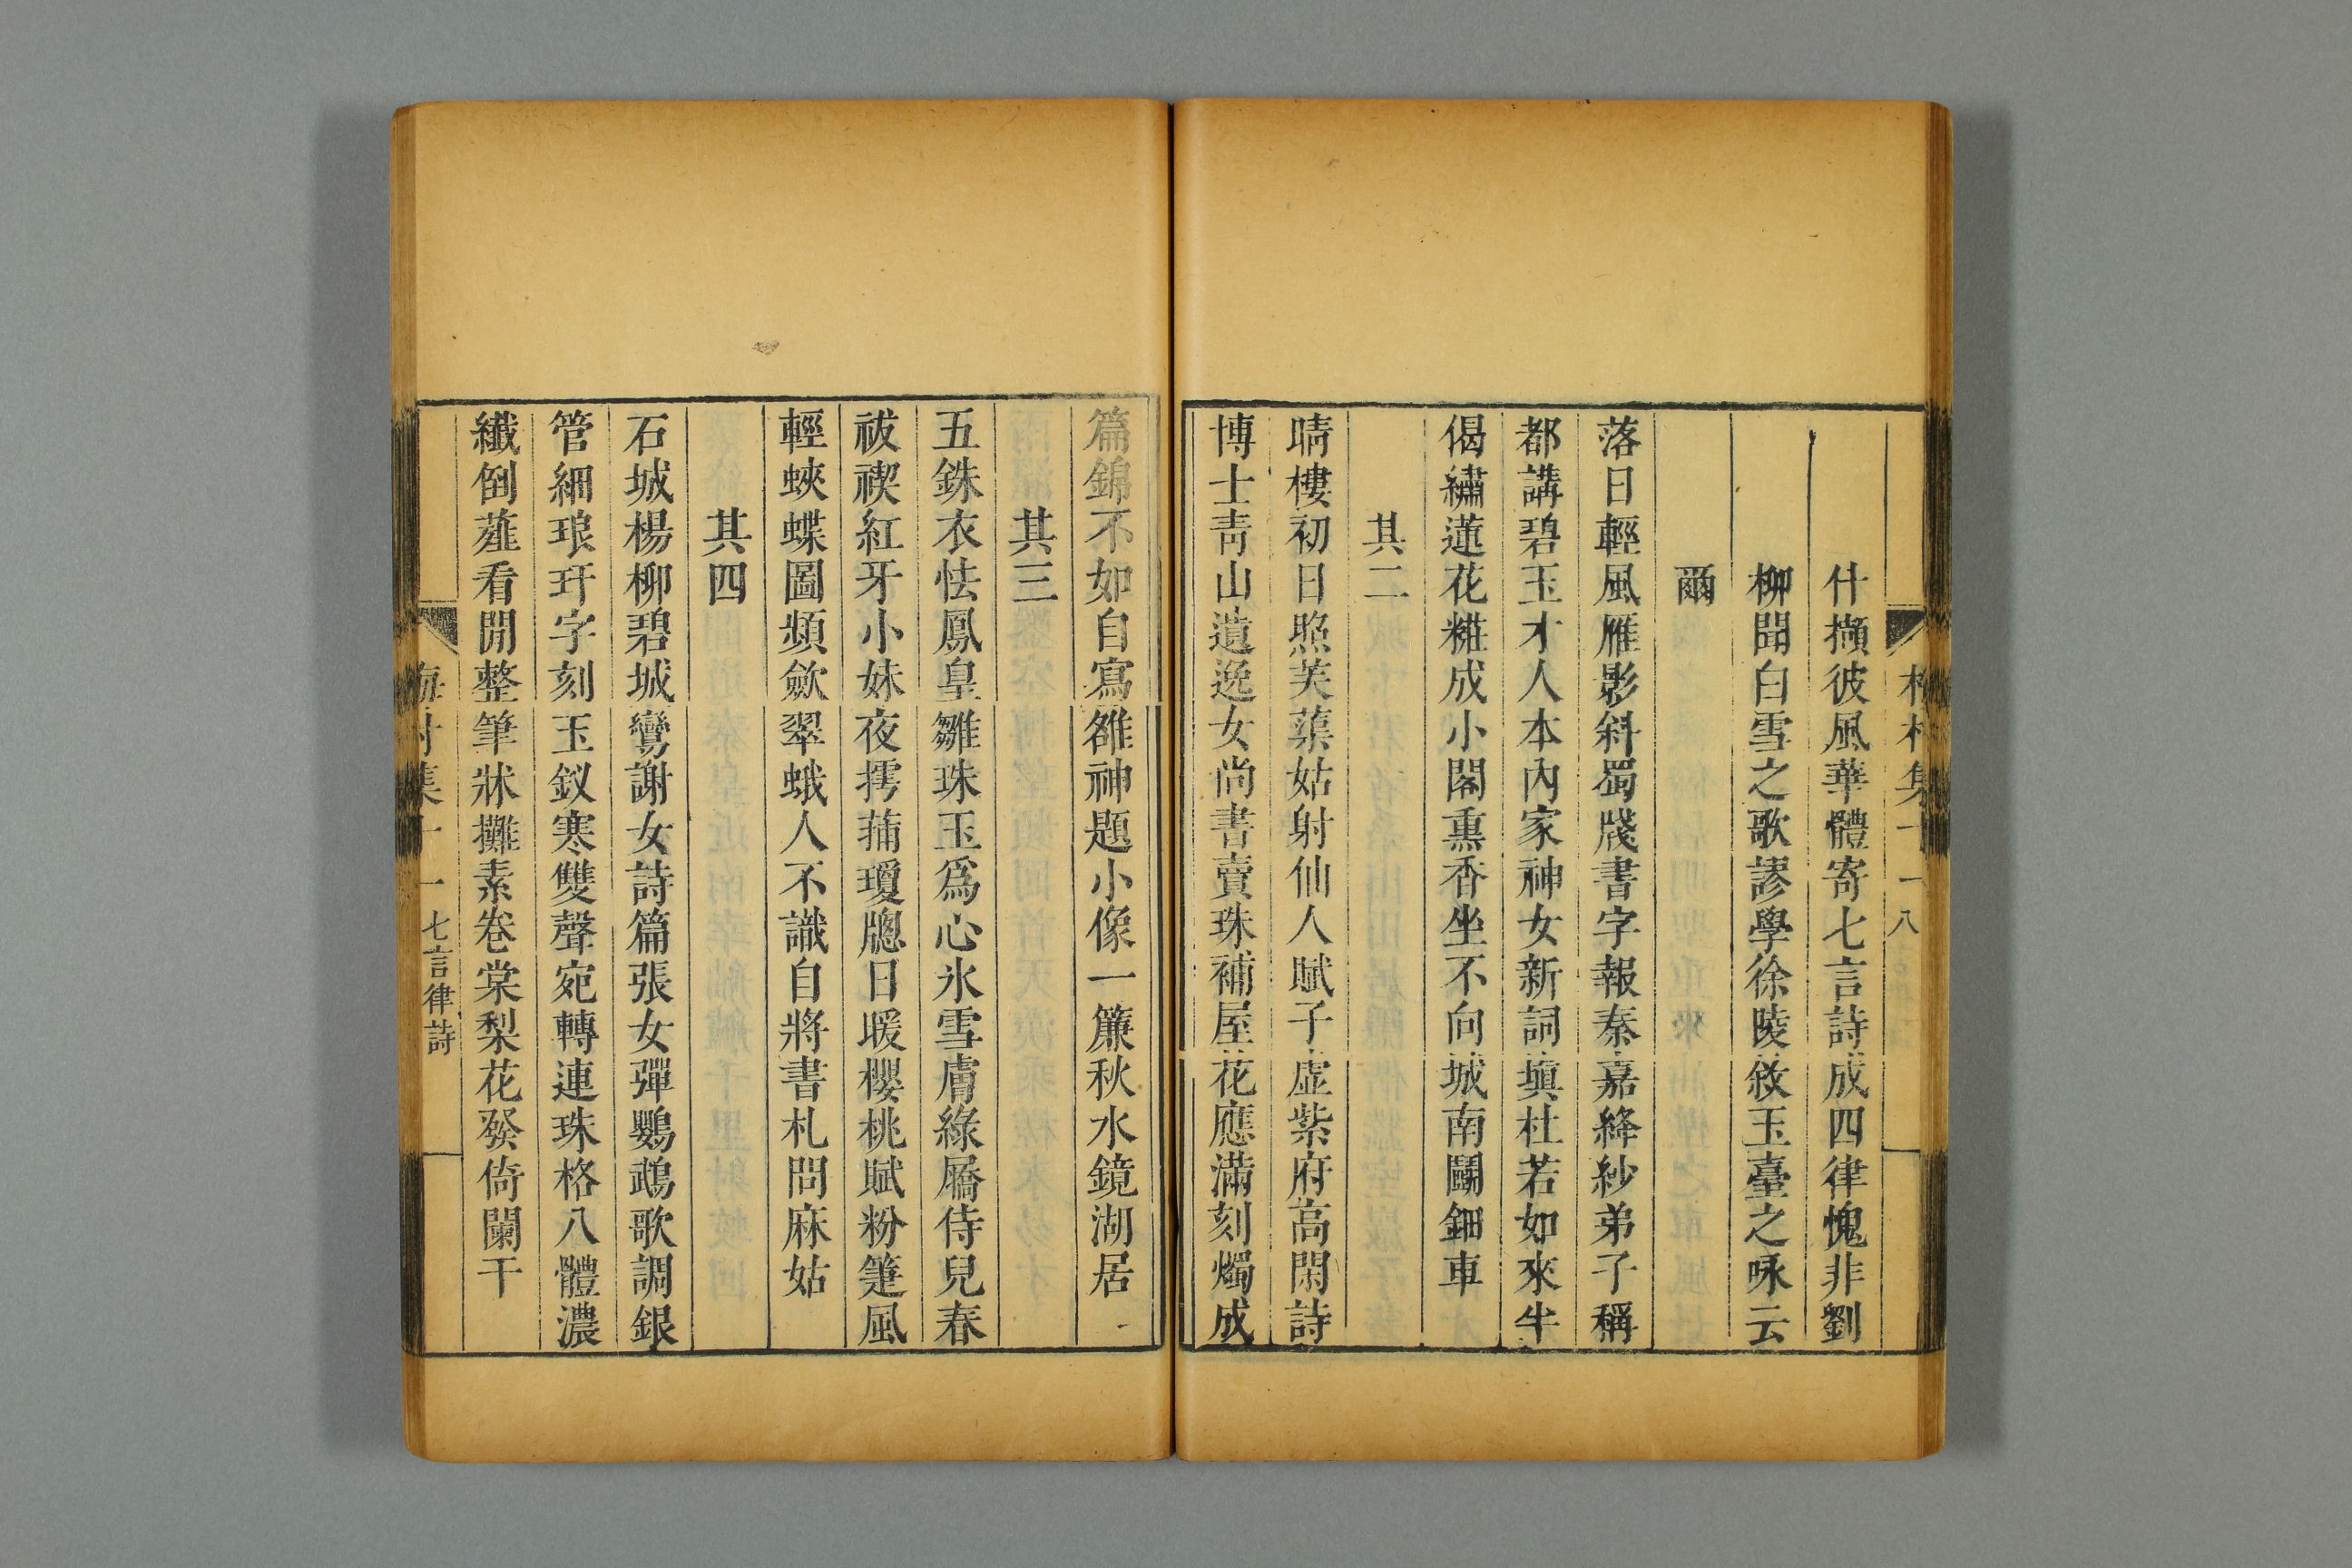 什擷彼風華體寄七言詩成四律愧非劉
柳聞白雪之歌謬學徐陵敘玉臺之咏云
爾
落日輕風雁影斜蜀牋書字報秦嘉絳紗弟子稱
都講碧玉才人本內家神女新詞填杜若如來半
偈繡蓮花糚成小閣熏香坐不向城南鬬鈿車
其二
晴樓初日照芙蕖姑射仙人賦子虛紫府高閑詩
博士靑山遺逸女尚書賣珠補屋花應滿刻燭成
篇錦不如自寫雒神題小像一簾秋水鏡湖居
其三
五銖衣怯鳳皇雛珠玉爲心氷雪膚綠屩侍兒春
祓禊紅牙小妹夜摴蒱瓊牕日暖櫻桃賦粉箑風
輕蛺蝶圖頻斂翠蛾人不識自將書札問麻姑
其四
石城楊柳碧城鸞謝女詩篇張女彈鸚鵡歌調銀
管細琅玕字刻玉釵寒雙聲宛轉連珠格八體濃
纖倒薤看閒整筆牀攤素卷棠梨花發倚闌干
梅村集十一 七言律詩